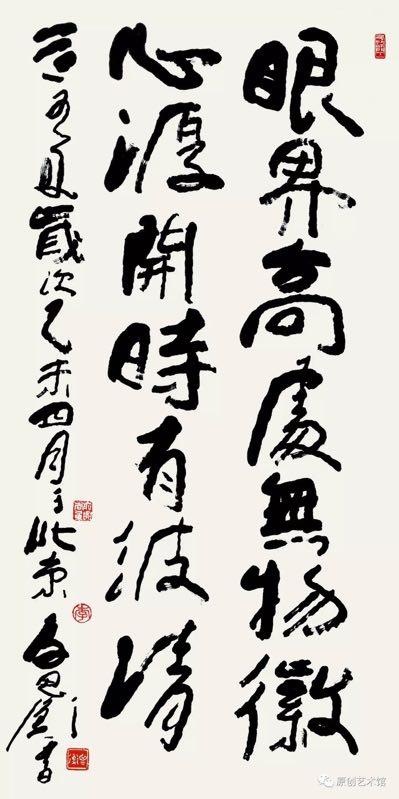 眼界高處無物徽
心源開時有波清
歲次乙未四月于北京
原创艺术馆